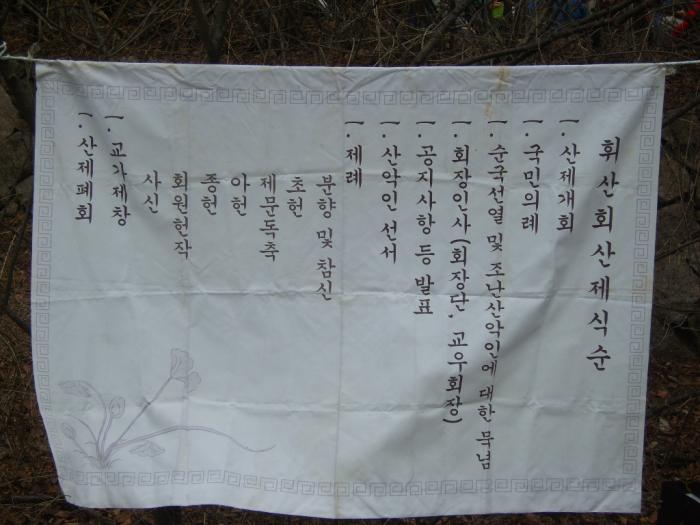 휘산회산제식순
一. 산제개회
一. 국민의례
一. 순국선열 및 조난산악인에 대한 묵념
一. 회장인사(회장단. 교우회장)
一. 공지사항 등 발표
一. 산악인 선서
一. 제례
분향 및 참신
초헌
제문독축
아헌
종헌
회원헌작
사신
一. 교가제창
一. 산제폐회